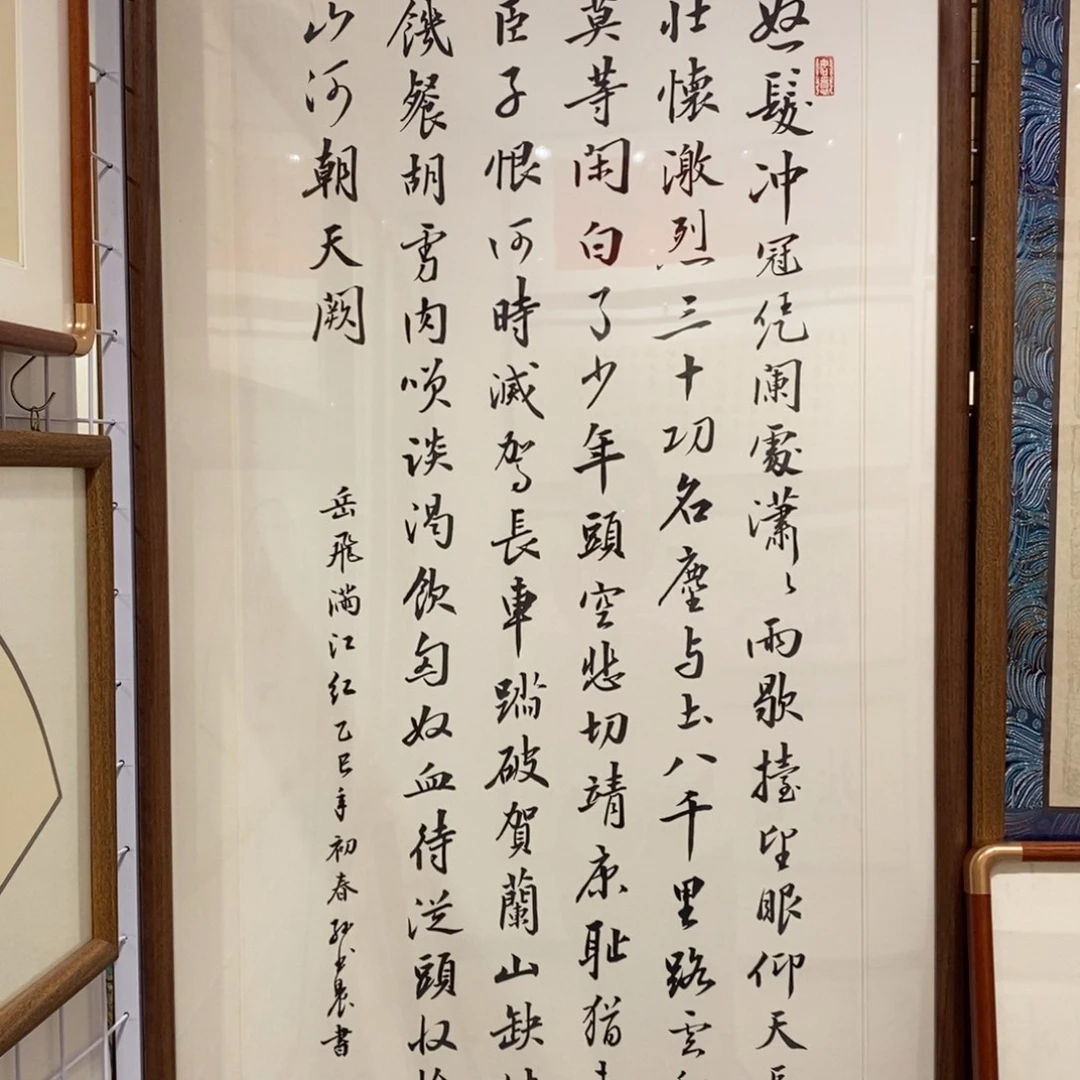 怒髮冲冠凭闌處瀟〻雨歇擡望眼仰天
壮懷激烈三十功名塵与土八千里路雲
莫等闲白了少年頭空悲切靖康耻猶
臣子恨何時滅駕長車踏破賀蘭山缺
饑餐胡虜肉咲談渴飲匈奴血待從頭收
山河朝天闕
岳飛滿江红乙巳年初春書